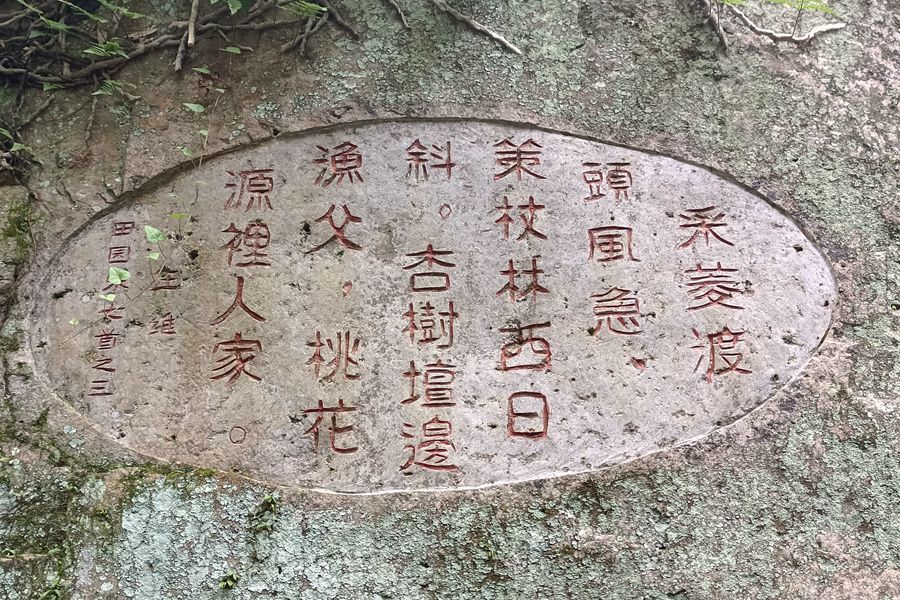 采菱渡
頭風急，
策杖林西日
斜。杏樹壇邊
漁父，桃花
源裡人家。
王維
田园乐七首之三